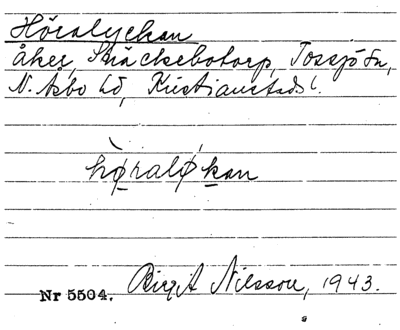 Höralyckan
åker, Sträckebotorp, Tossjö sn,
N. Åsbo hd, Kristianstads l.
hø̀raløkan
Birgit Nilsson, 1943.
Nr 5504.